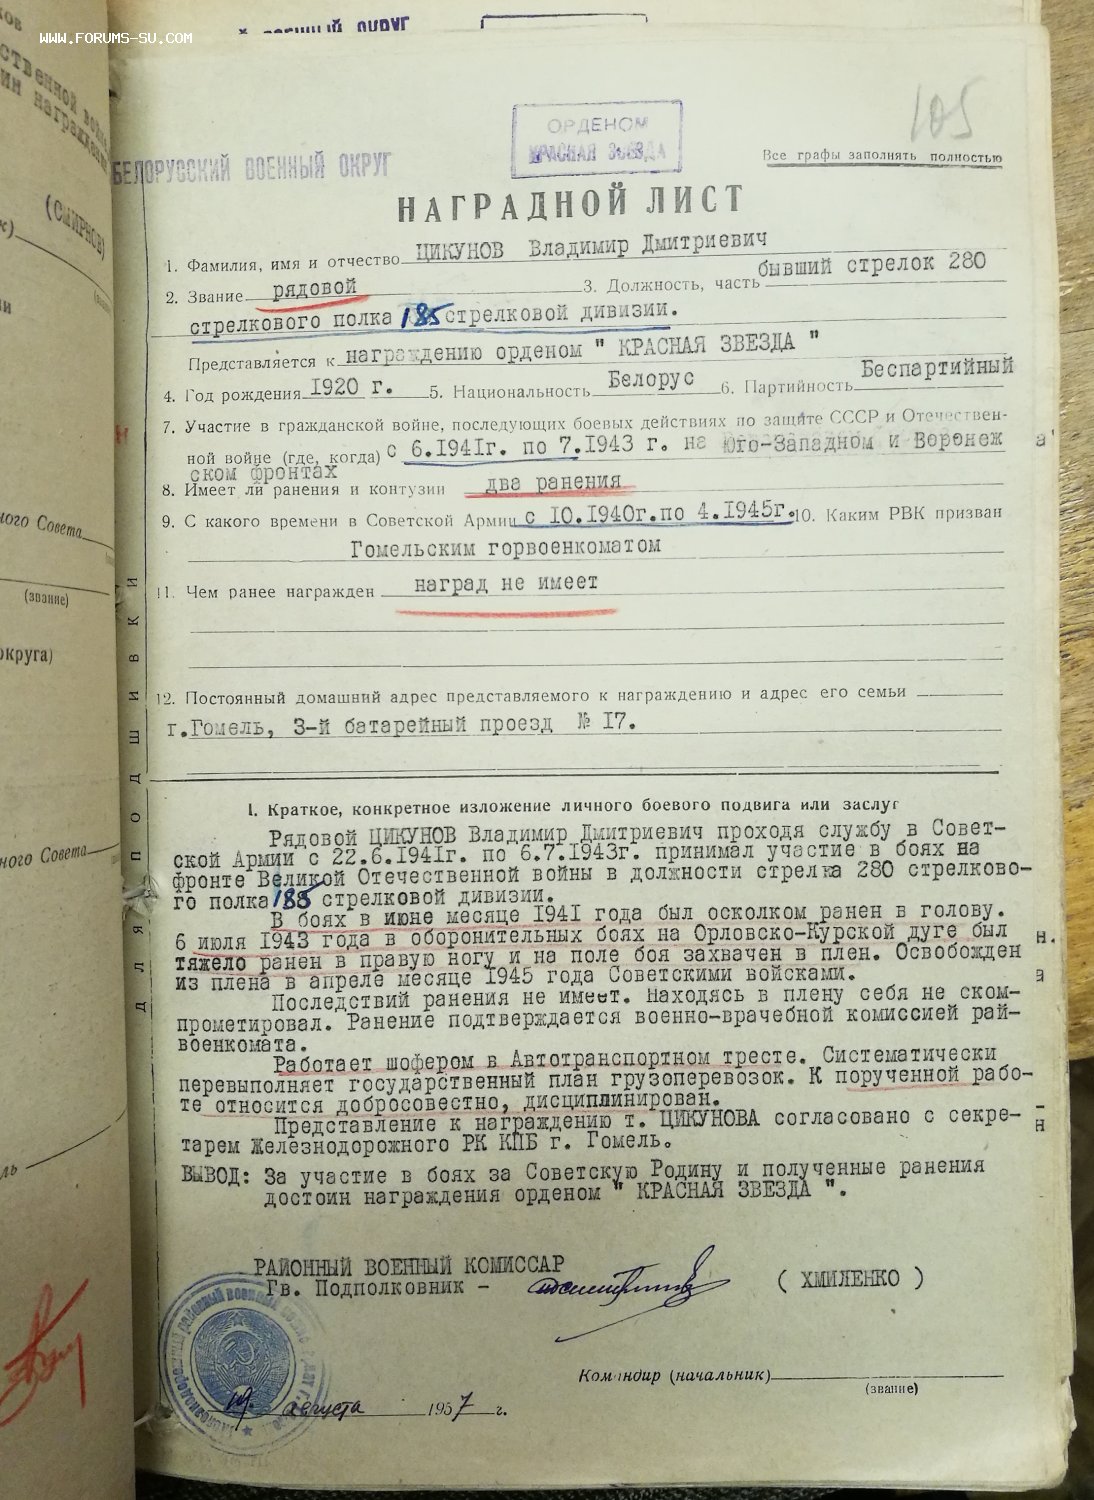 WWW.FORUMS-SU.COM
ВОЕННЫЙ ОКРУГ
105
ОРДЕНОМ
КРАСНАЯ ЗВЕЗДА
БЕЛОРУССКИЙ ВОЕННЫЙ ОКРУГ
Все графы заполнять полностью
НАГРАДНОЙ ЛИСТ
1. Фамилия, имя и отчество ЦИКУНОВ Владимир Дмитриевич
2. Звание рядовой 3. Должность, часть бывший стрелок 280
стрелкового полка 185 стрелковой дивизии.
Представляется к награждению орденом " КРАСНАЯ ЗВЕЗДА "
4. Год рождения 1920 г. 5. Национальность Белорус 6. Партийность Беспартийный
7. Участие в гражданской войне, последующих боевых действиях по защите СССР и Отечествен-
ной войне (где, когда) с 6.1941г. по 7.1943 г. на Юго-Западном и Воронеж
ском фронтах
8. Имеет ли ранения и контузии два ранения
9. С какого времени в Советской Армии с 10.1940г.по 4.1945г. 10. Каким РВК призван
Гомельским горвоенкоматом
11. Чем ранее награжден наград не имеет
12. Постоянный домашний адрес представляемого к награждению и адрес его семьи
г.Гомель, 3-й батарейный проезд № 17.
1. Краткое, конкретное изложение личного боевого подвига или заслуг
Рядовой ЦИКУНОВ Владимир Дмитриевич проходя службу в Совет-
ской Армии с 22.6.1941г. по 6.7.1943г. принимал участие в боях на
фронте Великой Отечественной войны в должности стрелка 280 стрелково-
го полка 185 стрелковой дивизии.
В боях в июне месяце 1941 года был осколком ранен в голову.
6 июля 1943 года в оборонительных боях на Орловско-Курской дуге был
тяжело ранен в правую ногу и на поле боя захвачен в плен. Освобожден
из плена в апреле месяце 1945 года Советскими войсками.
Последствий ранения не имеет. Находясь в плену себя не ском-
прометировал. Ранение подтверждается военно-врачебной комиссией рай-
военкомата.
Работает шофером в Автотранспортном тресте. Систематически
перевыполняет государственный план грузоперевозок. К порученной рабо-
те относится добросовестно, дисциплинирован.
Представление к награждению т. ЦИКУНОВА согласовано с секре-
тарем Железнодорожного РК КПБ г. Гомель.
ВЫВОД: За участие в боях за Советскую Родину и полученные ранения
достоин награждения орденом " КРАСНАЯ ЗВЕЗДА ".
РАЙОННЫЙ ВОЕННЫЙ КОМИССАР
Гв. Подполковник - ( ХМИЛЕНКО )
Командир (начальник)
(звание)
19. августа 1957 г.
ДЛЯ ПОДШИВКИ
(СМИРНОВ)
ного Совета
(звание)
округа)
ного Совета